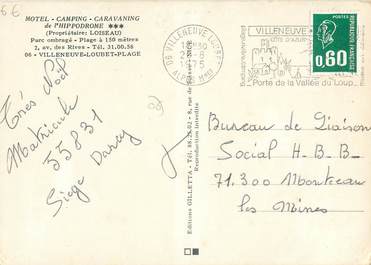 HOTEL - CAMPING - CARAVANING
de l'HIPPODROME ***
(Propriétaire: LOISEAU)
Parc ombragé - Plage à 150 mètres
2, av. des Rives - Tél. 31.00.56
06 - VILLENEUVE-LOUBET-PLAGE
06 VILLENEUVE LOUBET
ALPES MMES
VILLENEUVE
Porte de la Vallée du Loup
POSTES
0,60
Très Noël
Matricule
55831
Siège Darcy
Editions GILLETTA
Reproduction interdite
Bureau de Liaison
Social H.B.B.
71.300 Montceau
les Mines